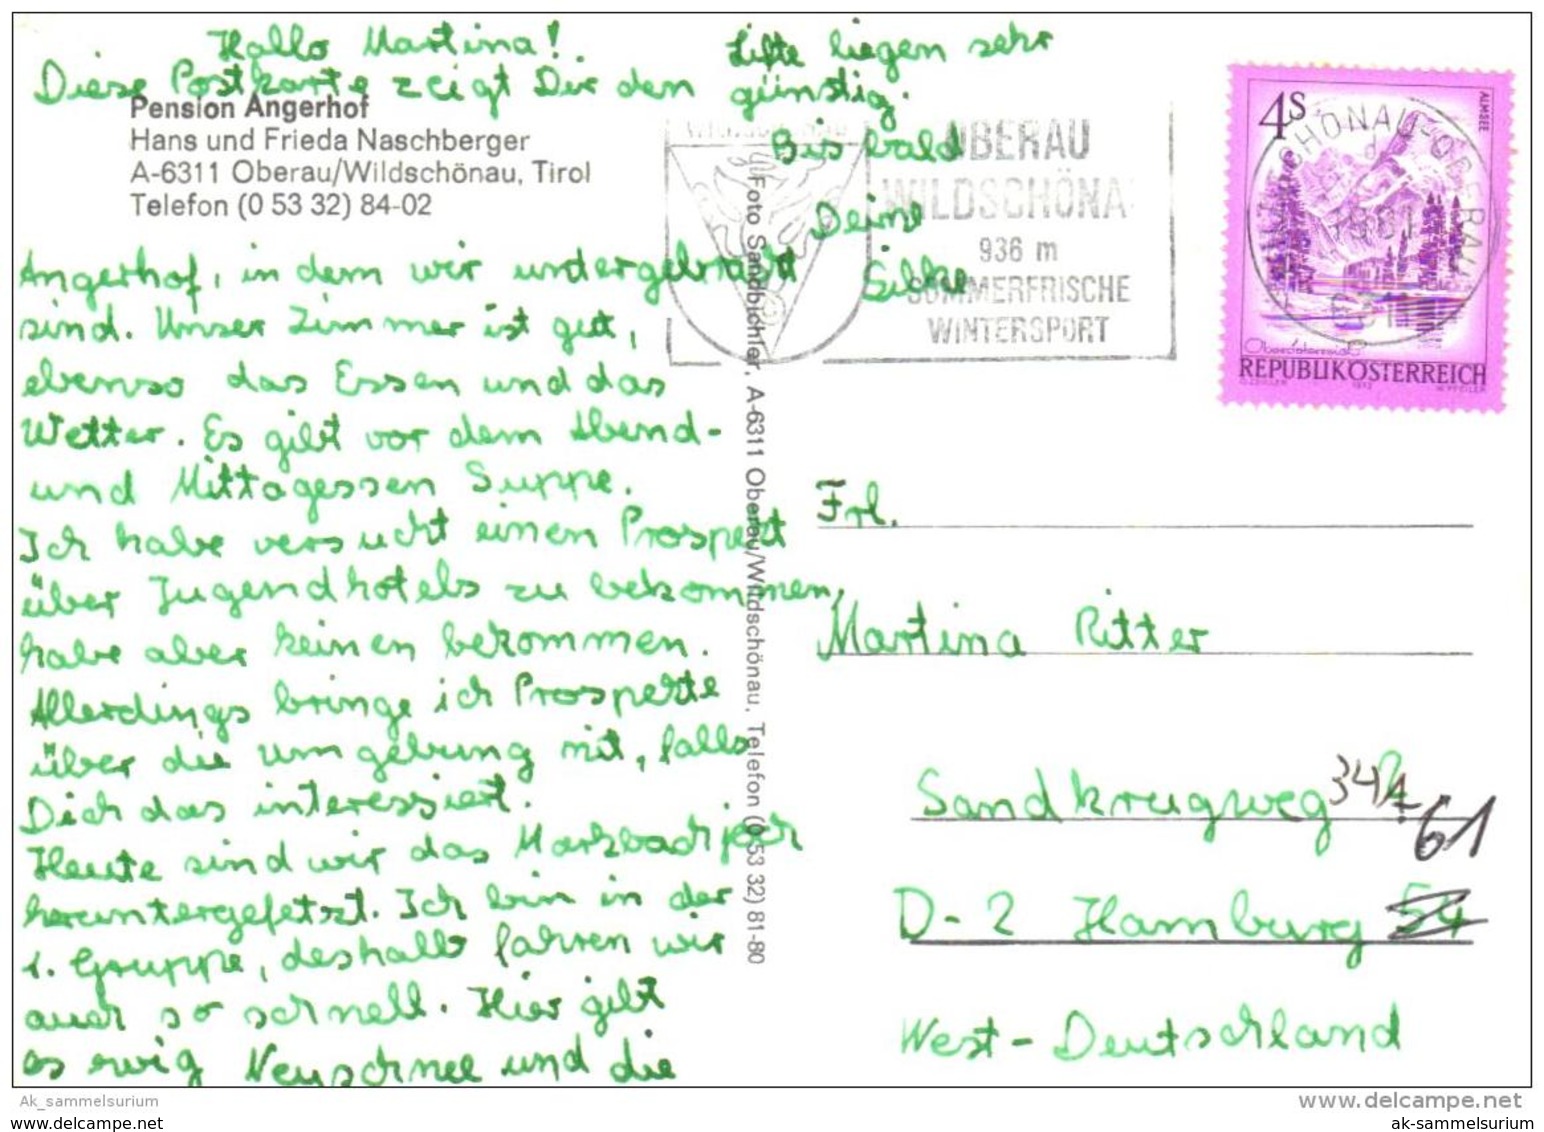 Hallo Martina!
Diese Postkarte zeigt Dir den
Pension Angerhof
Hans und Frieda Naschberger
A-6311 Oberau/Wildschönau, Tirol
Telefon (0 53 32) 84-02
Angerhof, in dem wir untergebracht
sind. Unser Zimmer ist gut,
ebenso das Essen und das
Wetter. Es gibt vor dem Abend-
und Mittagessen Suppe.
Ich habe versucht einen Prospekt
über Jugendhotels zu bekommen,
habe aber keinen bekommen.
Allerdings bringe ich Prospekte
über die Umgebung mit, falls
Dich das interessiert.
Heute sind wir das Markbachjoch
heruntergefetzt. Ich bin in der
1. Gruppe, deshalb fahren wir
auch so schnell. Hier gibt
es ewig Neuschnee und die
Lifte liegen sehr
günstig.
Bis bald
Deine
Silke
Foto Sandbichler, A-6311 Oberau/Wildschönau, Telefon (0 53 32) 81-80
OBERAU
WILDSCHÖNA
936 m
SOMMERFRISCHE
WINTERSPORT
4S
ALMSEE
Oberösterreich
REPUBLIK ÖSTERREICH
Frl.
Martina Ritter
Sandkrugweg 34
D-2 Hamburg 54
61
West-Deutschland
Ak_sammelsurium
www.delcampe.net
www.delcampe.net
ak-sammelsurium